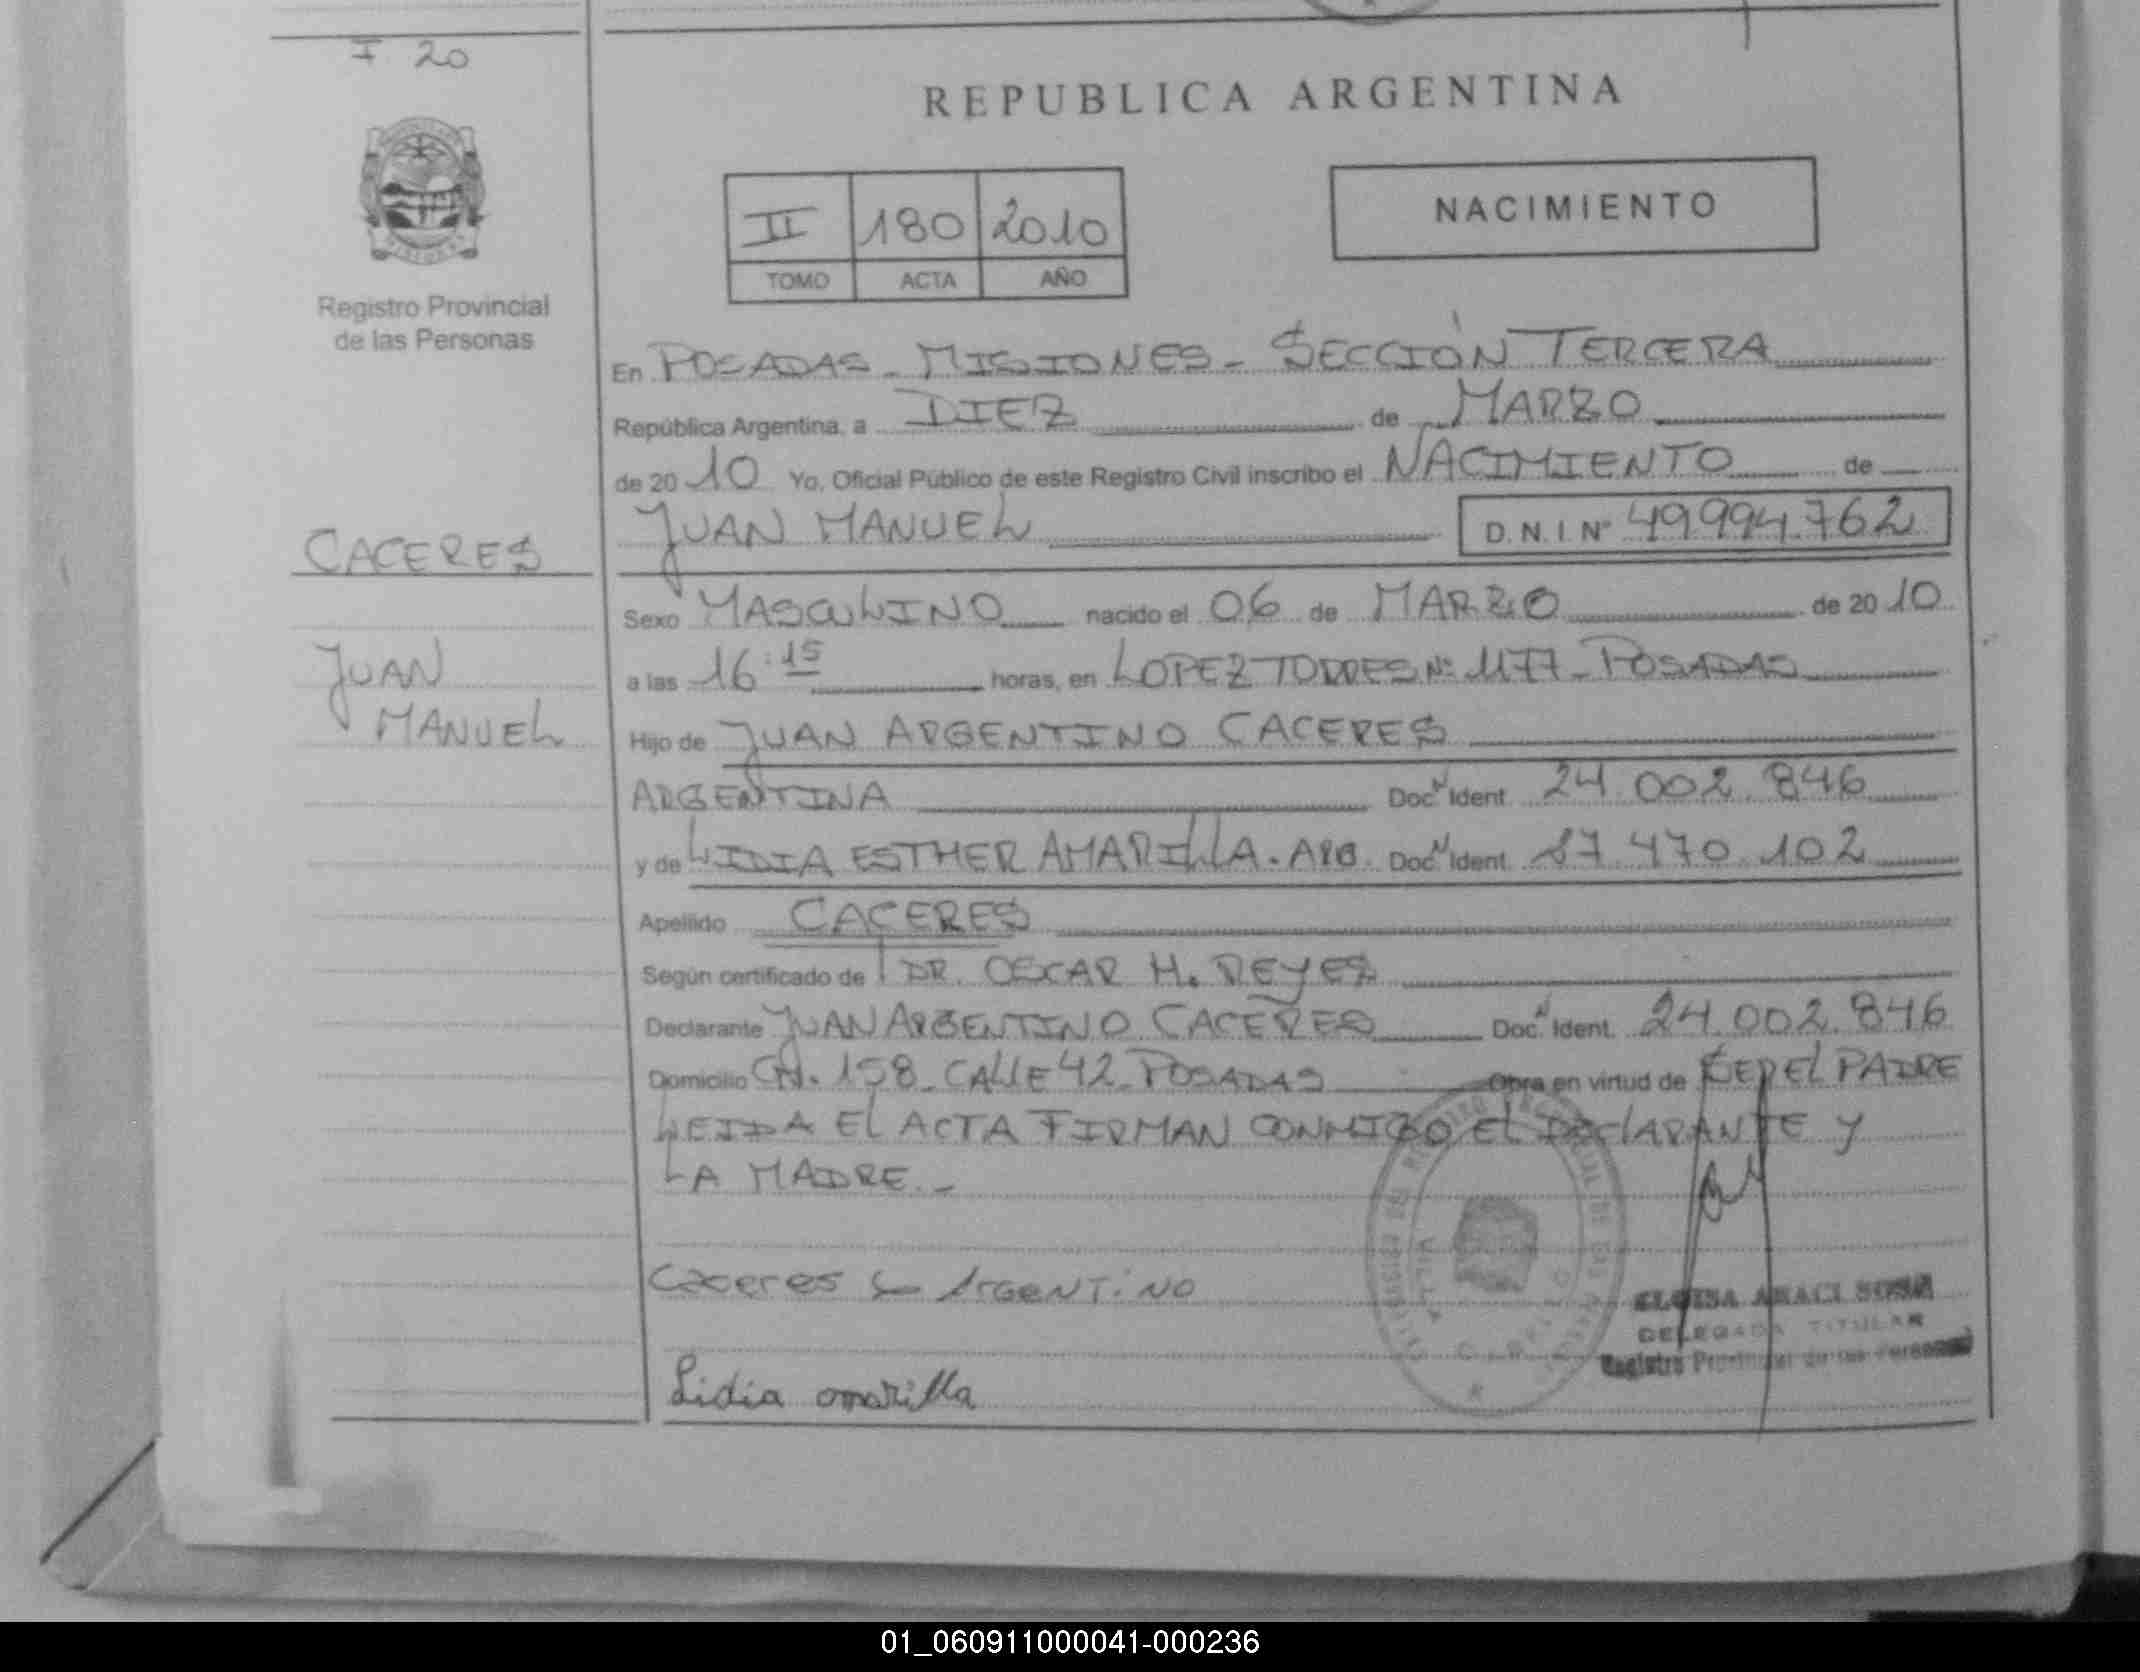 I 20
REPUBLICA ARGENTINA
II 180 2010
TOMO ACTA AÑO
NACIMIENTO
Registro Provincial
de las Personas
En POSADAS - MISIONES - SECCIÓN TERCERA
República Argentina, a DIEZ de MARZO
de 20 10 Yo, Oficial Público de este Registro Civil inscribo el NACIMIENTO de
JUAN MANUEL D.N.I. Nº 49.994.762
CACERES
JUAN
MANUEL
Sexo MASCULINO nacido el 06 de MARZO de 20 10
a las 16:15 horas, en LOPEZ TORRES Nº 1177 - POSADAS
Hijo de JUAN ARGENTINO CACERES
ARGENTINA Doc N Ident 24.002.846
y de LIDIA ESTHER AMARILLA. ARG. Doc N Ident 27.470.102
Apellido CACERES
Según certificado de DR. OSCAR H. REYES
Declarante JUAN ARGENTINO CACERES Doc N Ident. 24.002.846
Domicilio CH. 158 - CALLE 42 - POSADAS Obra en virtud de SER EL PADRE
LEIDA EL ACTA FIRMAN CONMIGO EL DECLARANTE Y
LA MADRE. -
Caceres Argentino
ELOISA ARACI SOSA
DELEGADA TITULAR
Registro Provincial de las Personas
Lidia amarilla
01_060911000041-000236